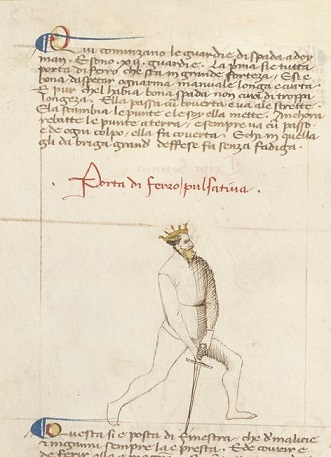 Qui cominzano le guardie di spada a doy
man. E sono xij guardie. La prima si e tutta
porta di ferro che sta in grande forteza, E si e
bona daspetar ognarma manuale longa e curta.
E pur chel habia bona spada non cura di troppa
longeza. Ella passa cum coverta e va ale strette.
Ella scambia le punte e le soy ella mette. Anchora
rebatte le punte a terra, e sempre va cum passo
e de ogni colpo, ella fa coverta. E chi in quella
gli da briga grand deffese fa senza fadiga.
Porta di ferro pulsativa.
Questa si e posta di finestra, che di malicie
e inganni sempre la e presta. E de covrire e
de ferir ella